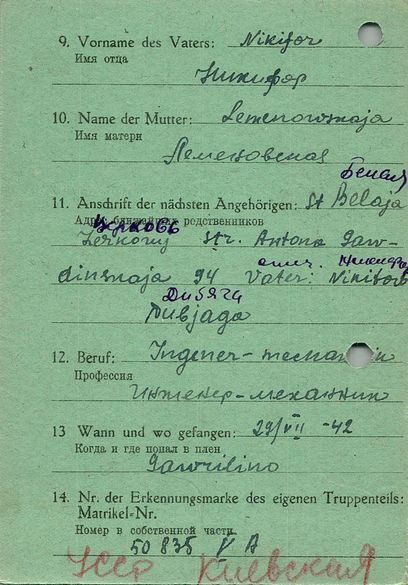 9. Vorname des Vaters: Nikifor
Имя отца
Никифор
10. Name der Mutter: Lemenowskaja
Имя матери
Леменовская
Белая
11. Anschrift der nächsten Angehörigen: st Belaja
Адрес ближайших родственников
Церковь
Zerkowy str. Antona Saw-
отч. Никифор
dinskaja 94 Vater: Nikifor
Дибяга
Dibjaga
12. Beruf: Ingener-mechanik
Профессия
Инженер-механик
13 Wann und wo gefangen: 29/VII -42
Когда и где попал в плен
Gawrilino
14. Nr. der Erkennungsmarke des eigenen Truppenteils:
Matrikel-Nr.
Номер в собственной части.
50835 V A
УССР Киевская